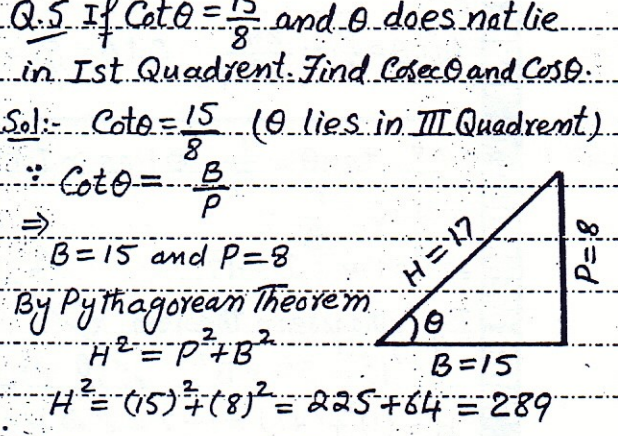 Q.5 If Cotθ = 15/8 and θ does not lie
in Ist Quadrent. Find Cosecθ and Cosθ.
Sol:- Cotθ = 15/8 (θ lies in III Quadrent)
∵ Cotθ = B/P
⇒
B = 15 and P = 8
By Pythagorean Theorem
H² = P² + B²
H² = (15)² + (8)² = 225 + 64 = 289
H = 17
P = 8
θ
B = 15